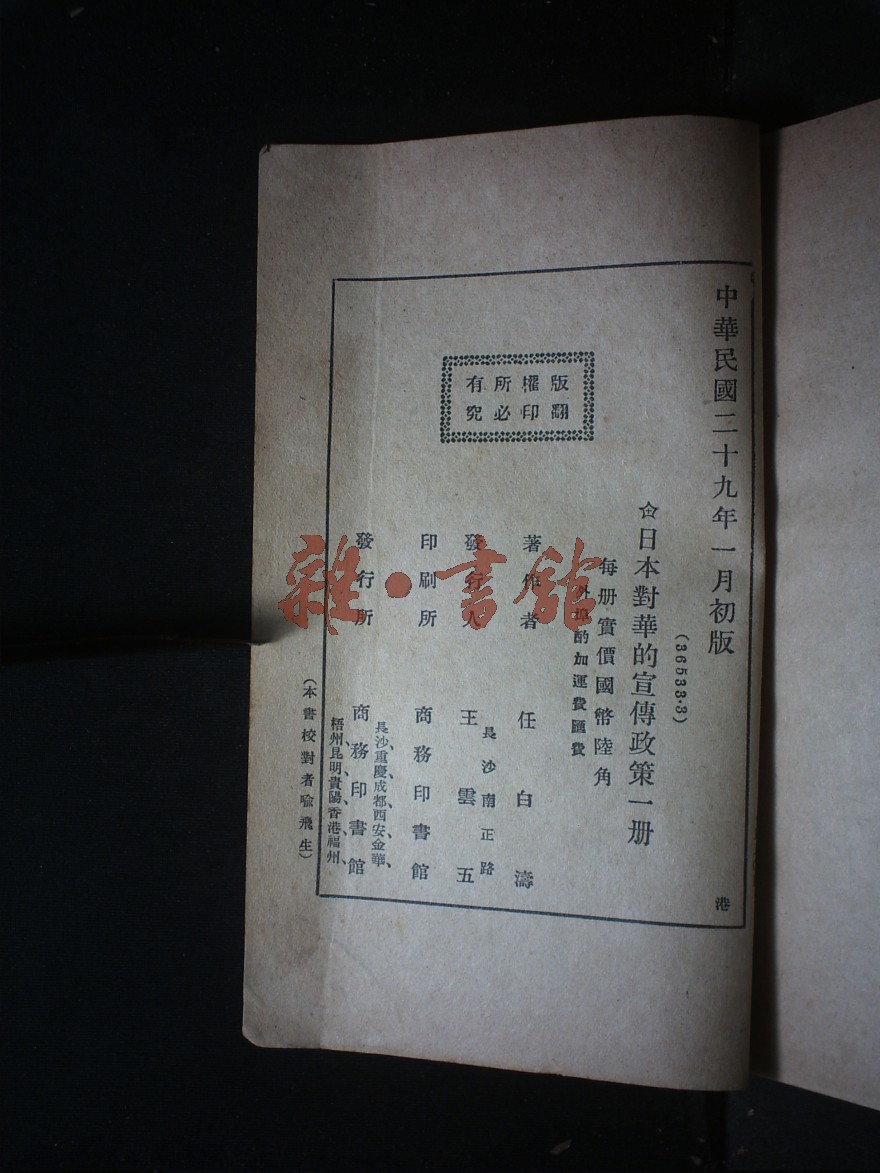 中華民國二十九年一月初版
(36533·3)
☆日本對華的宣傳政策一册
每册實價國幣陸角
外埠酌加運費匯費
版權所有
翻印必究
著作者 任白濤
發行人 王雲五
長沙南正路
印刷所 商務印書館
發行所 商務印書館
長沙、重慶、成都、西安、金華、
梧州、昆明、貴陽、香港、福州、
(本書校對者喩飛生)
港
雜·書館